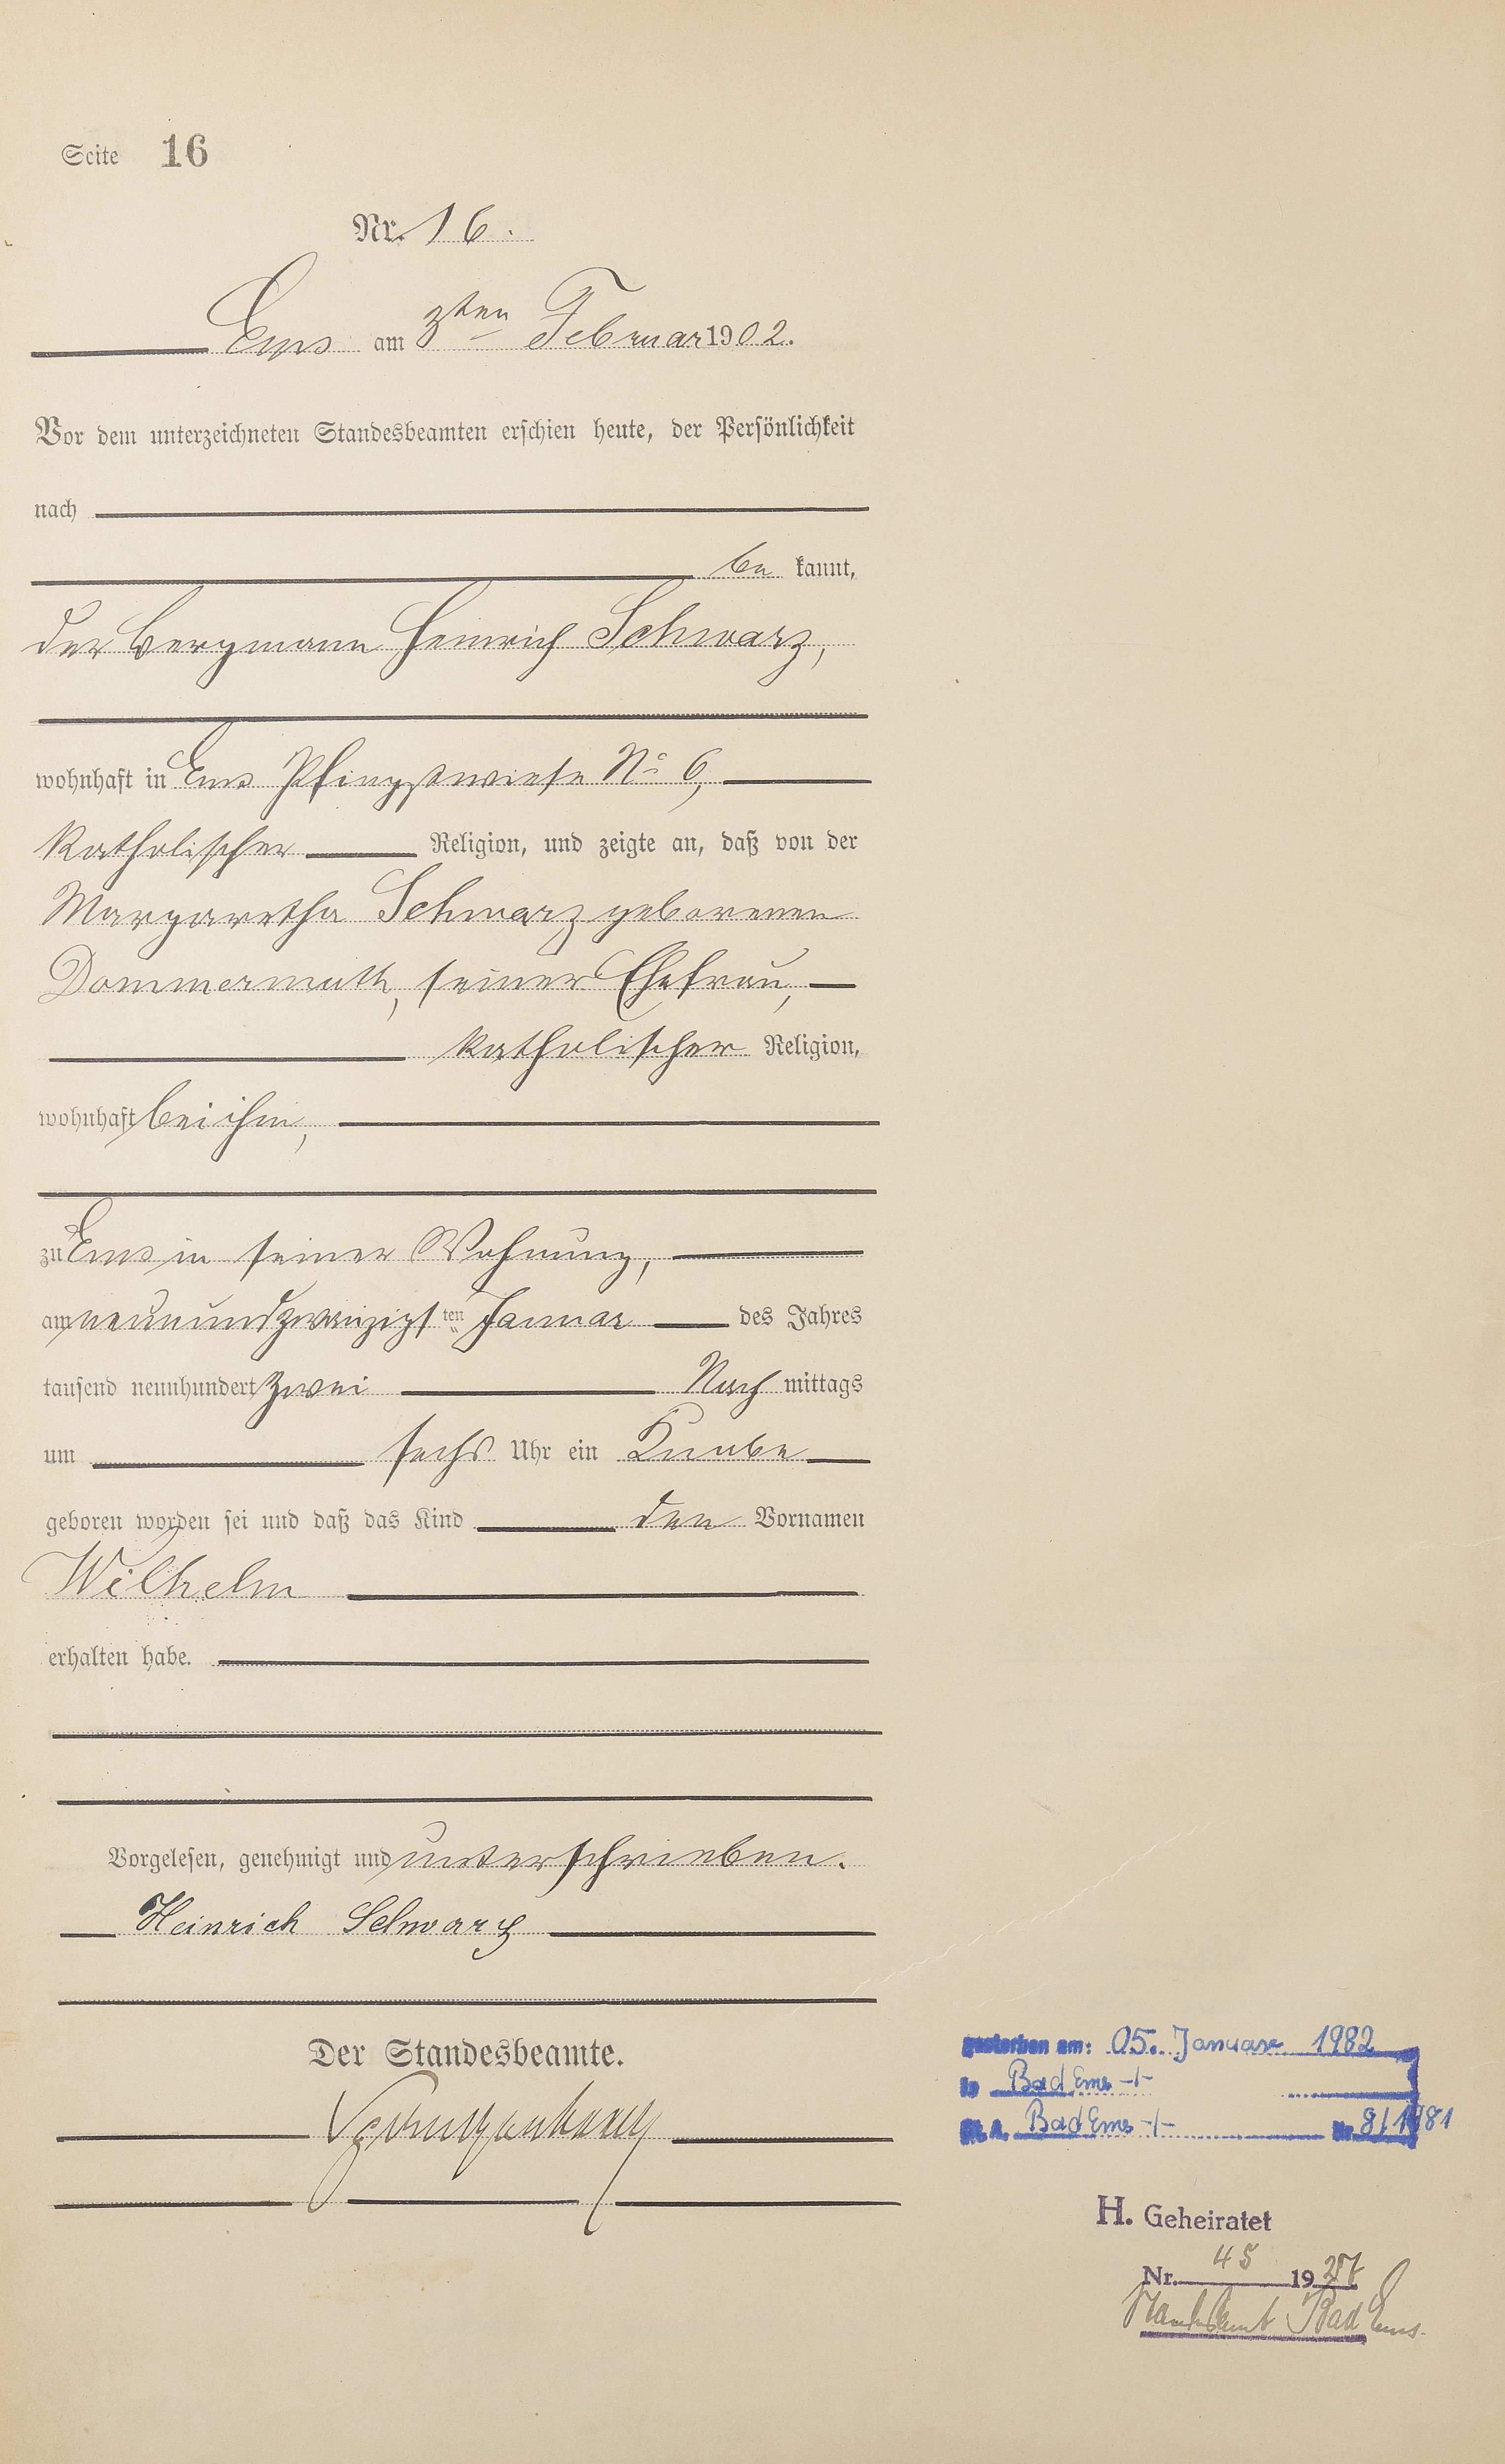 Seite 16
Nr. 16.
Ems am 3ten Februar 1902.
Vor dem unterzeichneten Standesbeamten erschien heute, der Persönlichkeit
nach
be kannt,
der Bergmann Heinrich Schwarz,
wohnhaft in Ems Pfingstwiese No 6,
katholischer Religion, und zeigte an, daß von der
Margaretha Schwarz geborenen
Dommermuth, seiner Ehefrau,
katholischer Religion,
wohnhaft bei ihm,
zu Ems in seiner Wohnung,
am neunundzwanzigsten Januar des Jahres
tausend neunhundert zwei Nach mittags
um sechs Uhr ein Knabe
geboren worden sei und daß das Kind den Vornamen
Wilhelm
erhalten habe.
Vorgelesen, genehmigt und unterschrieben.
Heinrich Schwarz
Der Standesbeamte.
gestorben am: 05. Januar 1982
in Bad Ems -/-
St.A. Bad Ems -/- Nr.
H. Geheiratet
Nr. 45 19
Standesamt Bad Ems.